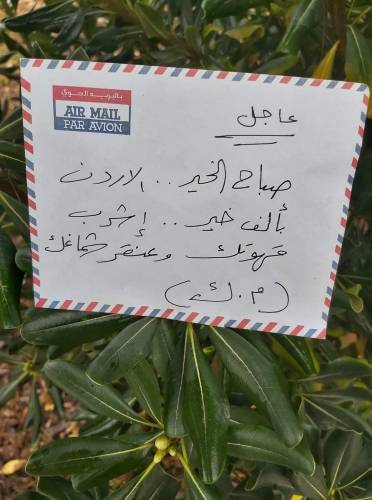 بالبريد الجوي
AIR MAIL
PAR AVION
عاجل
صباح الخير .. الاردن
بألف خير .. إشرب
قهوتك وعنقر شماغك
(م.ك)